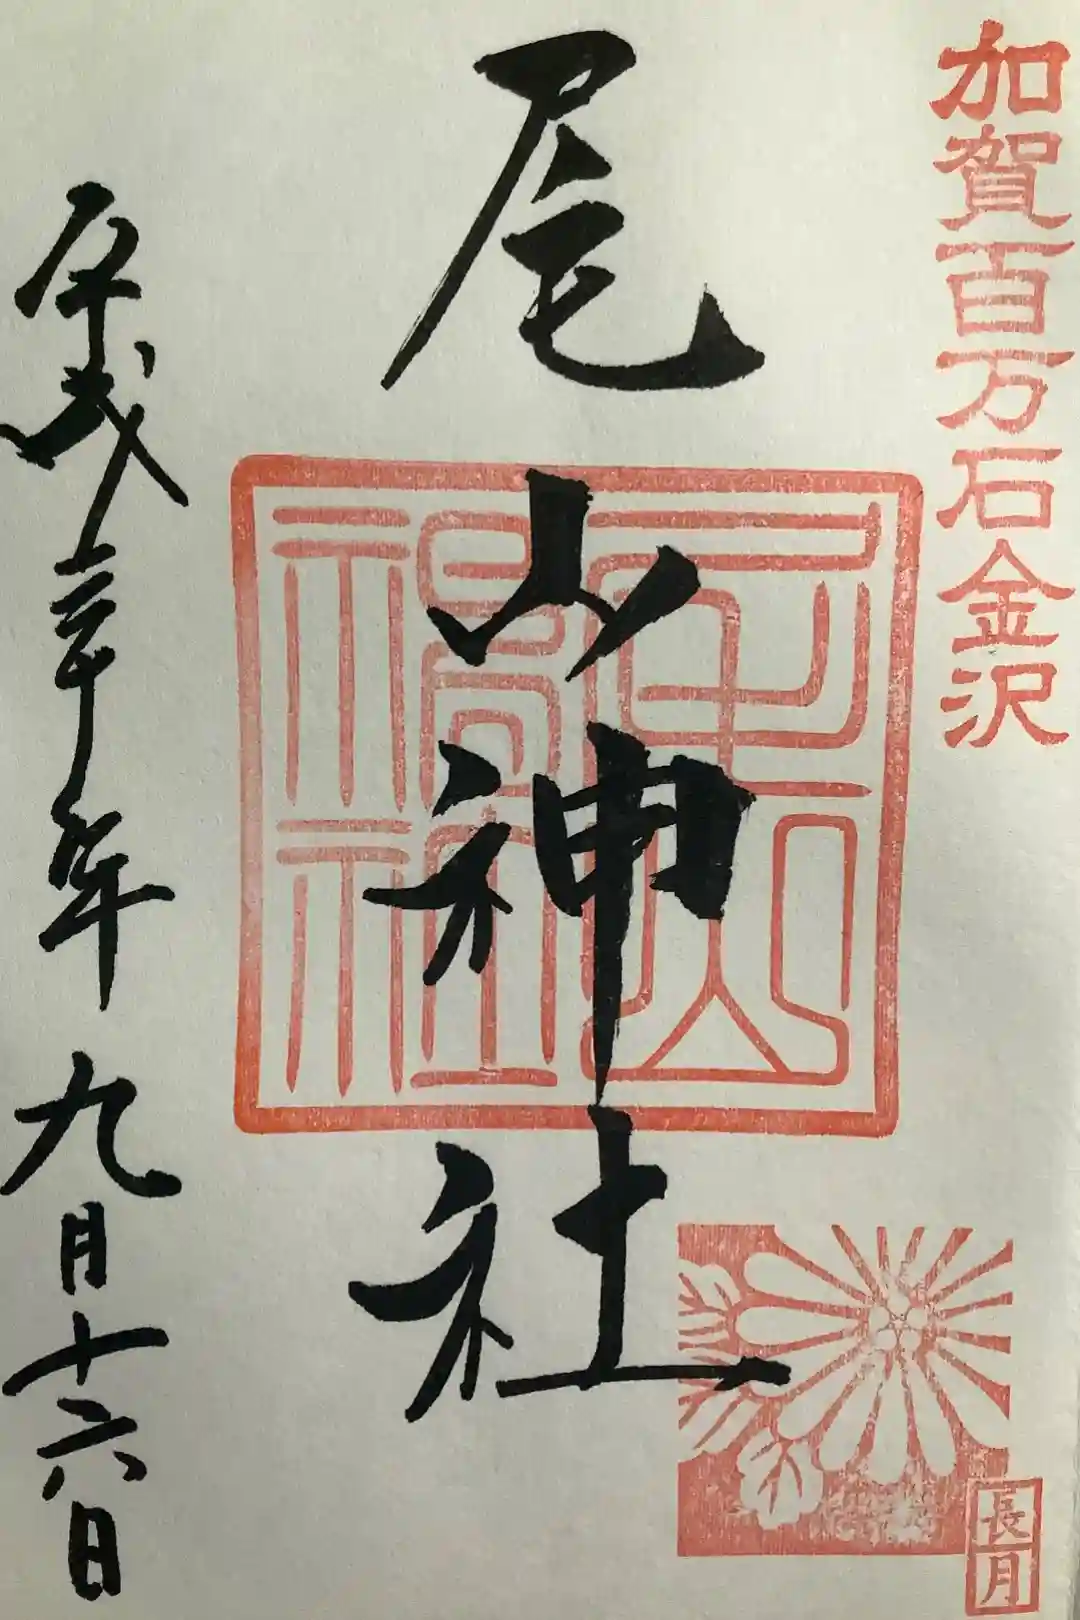 加賀百万石金沢
尾山神社
尾山神社
長月
平成三十年九月十六日